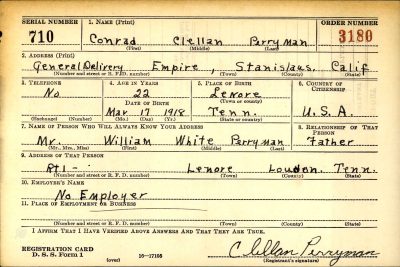 SERIAL NUMBER 1. NAME (Print) ORDER NUMBER
710 Conrad Clellan Perryman 3180
(First) (Middle) (Last)
2. ADDRESS (Print)
General Delivery Empire, Stanislaus, Calif
(Number and street or R. F. D. number) (Town) (County) (State)
3. TELEPHONE 4. AGE IN YEARS 5. PLACE OF BIRTH 6. COUNTRY OF CITIZENSHIP
No 22 Lenore
DATE OF BIRTH (Town or county)
Mar 17 1918 Tenn. U.S.A.
(Exchange) (Number) (Mo.) (Day) (Yr.) (State or country)
7. NAME OF PERSON WHO WILL ALWAYS KNOW YOUR ADDRESS 8. RELATIONSHIP OF THAT PERSON
Mr. William White Perryman Father
(Mr., Mrs., Miss) (First) (Middle) (Last)
9. ADDRESS OF THAT PERSON
Rt 1 - Lenore Loudon, Tenn.
(Number and street or R. F. D. number) (Town) (County) (State)
10. EMPLOYER'S NAME
No Employer
11. PLACE OF EMPLOYMENT OR BUSINESS
(Number and street or R. F. D. number) (Town) (County) (State)
I AFFIRM THAT I HAVE VERIFIED ABOVE ANSWERS AND THAT THEY ARE TRUE.
REGISTRATION CARD
D. S. S. FORM 1 (over) 16—17105
Clellan Perryman
(Registrant's signature)